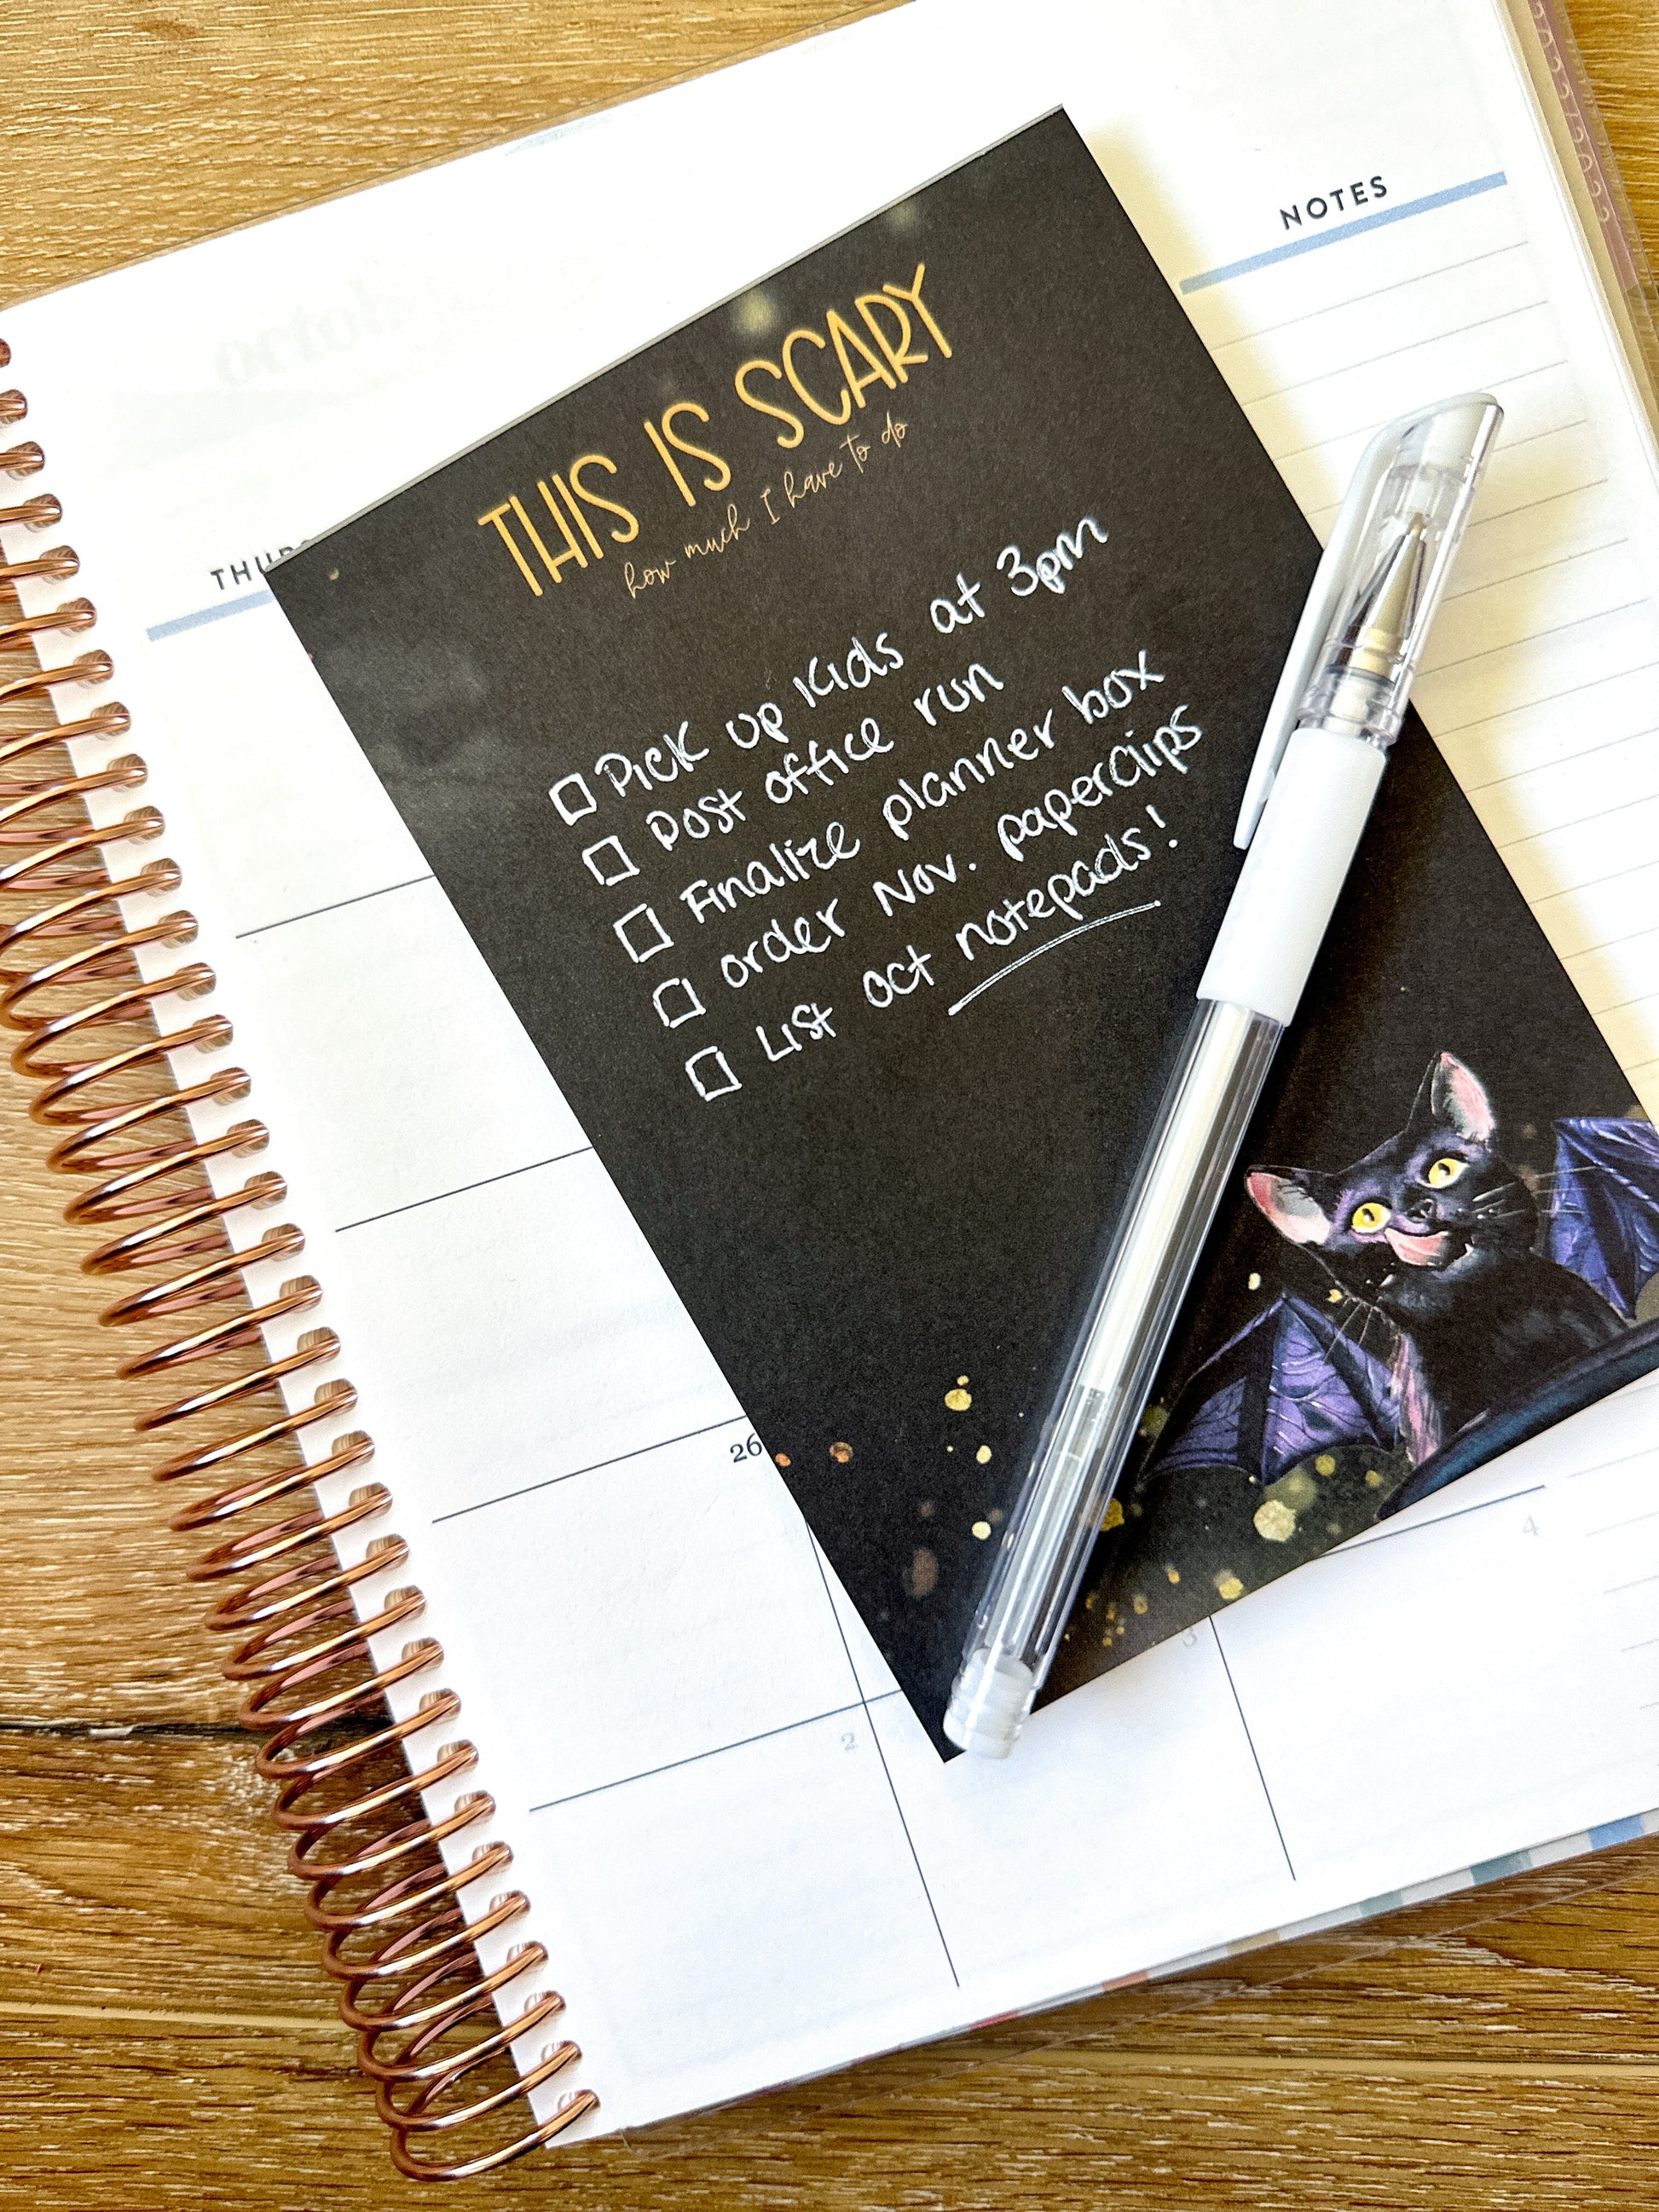 NOTES
THIS IS SCARY
how much I have to do
□ Pick up kids at 3pm
□ Post office run
□ Finalize planner box
□ order Nov. paperclips
□ List oct notepads!
26
4
3
2